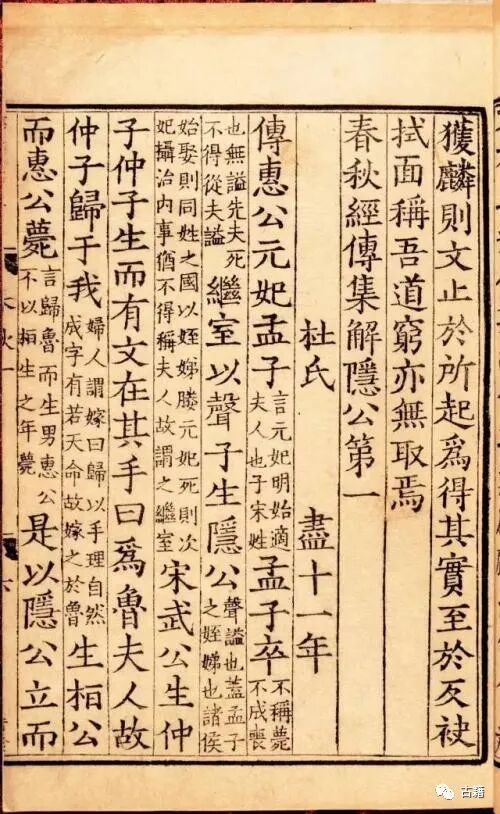 獲麟則文止於所起爲得其實至於反袂
拭面稱吾道窮亦無取焉
春秋經傳集解隱公第一
杜氏　盡十一年
傳惠公元妃孟子言元妃明始適夫人也子宋姓孟子卒不稱薨不成喪
也無謚先夫死不得從夫謚繼室以聲子生隱公聲謚也蓋孟子之姪娣也諸侯
始娶則同姓之國以姪娣媵元妃死則次妃攝治内事猶不得稱夫人故謂之繼室宋武公生仲
子仲子生而有文在其手曰爲魯夫人故
仲子歸于我婦人謂嫁曰歸以手理自然成字有若天命故嫁之於魯生桓公
而惠公薨言歸魯而生男惠公不以桓生之年薨是以隱公立而
六
古籍